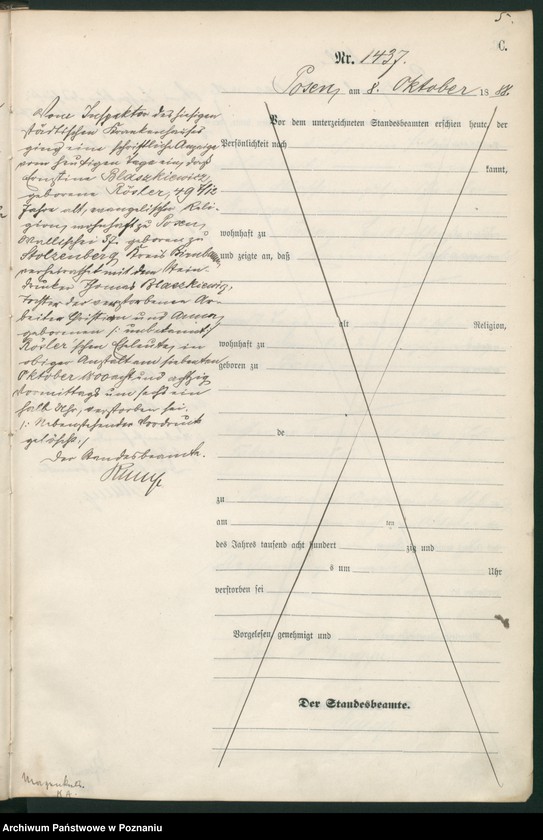 5.
C.
Nr. 1437.
Posen, am 8. Oktober 1888.
Vom Inspektor des hiesigen
städtischen Krankenhauses
ging eine schriftliche Anzeige
vom heutigen Tage ein, daß
Ernstine Blaszkiewicz,
geborene Rösler, 49 9/12
Jahre alt, evangelischer Reli-
gion, wohnhaft zu Posen,
Wallischei geboren zu
Stolzenberg, Kreis
verheirathet mit dem Stein-
drucker Thomas Blaszkiewicz,
Tochter der verstorbenen Ar-
beiter Christian und Anna,
geborenen /: unbekannt,
Rösler'schen Eheleute, in
obiger Anstalt am siebenten
Oktober 1800 acht und achtzig
Vormittags um sechs ein
halb Uhr, verstorben sei.
/: Nebenstehender Vordruck
gelöscht. /
Der Standesbeamte.
Vor dem unterzeichneten Standesbeamten erschien heute, der
Persönlichkeit nach
kannt,
wohnhaft zu
und zeigte an, daß
alt Religion,
wohnhaft zu
geboren zu
de
zu
am ten
des Jahres tausend acht hundert zig und
s um Uhr
verstorben sei
Vorgelesen, genehmigt und
Der Standesbeamte.
Archiwum Państwowe w Poznaniu